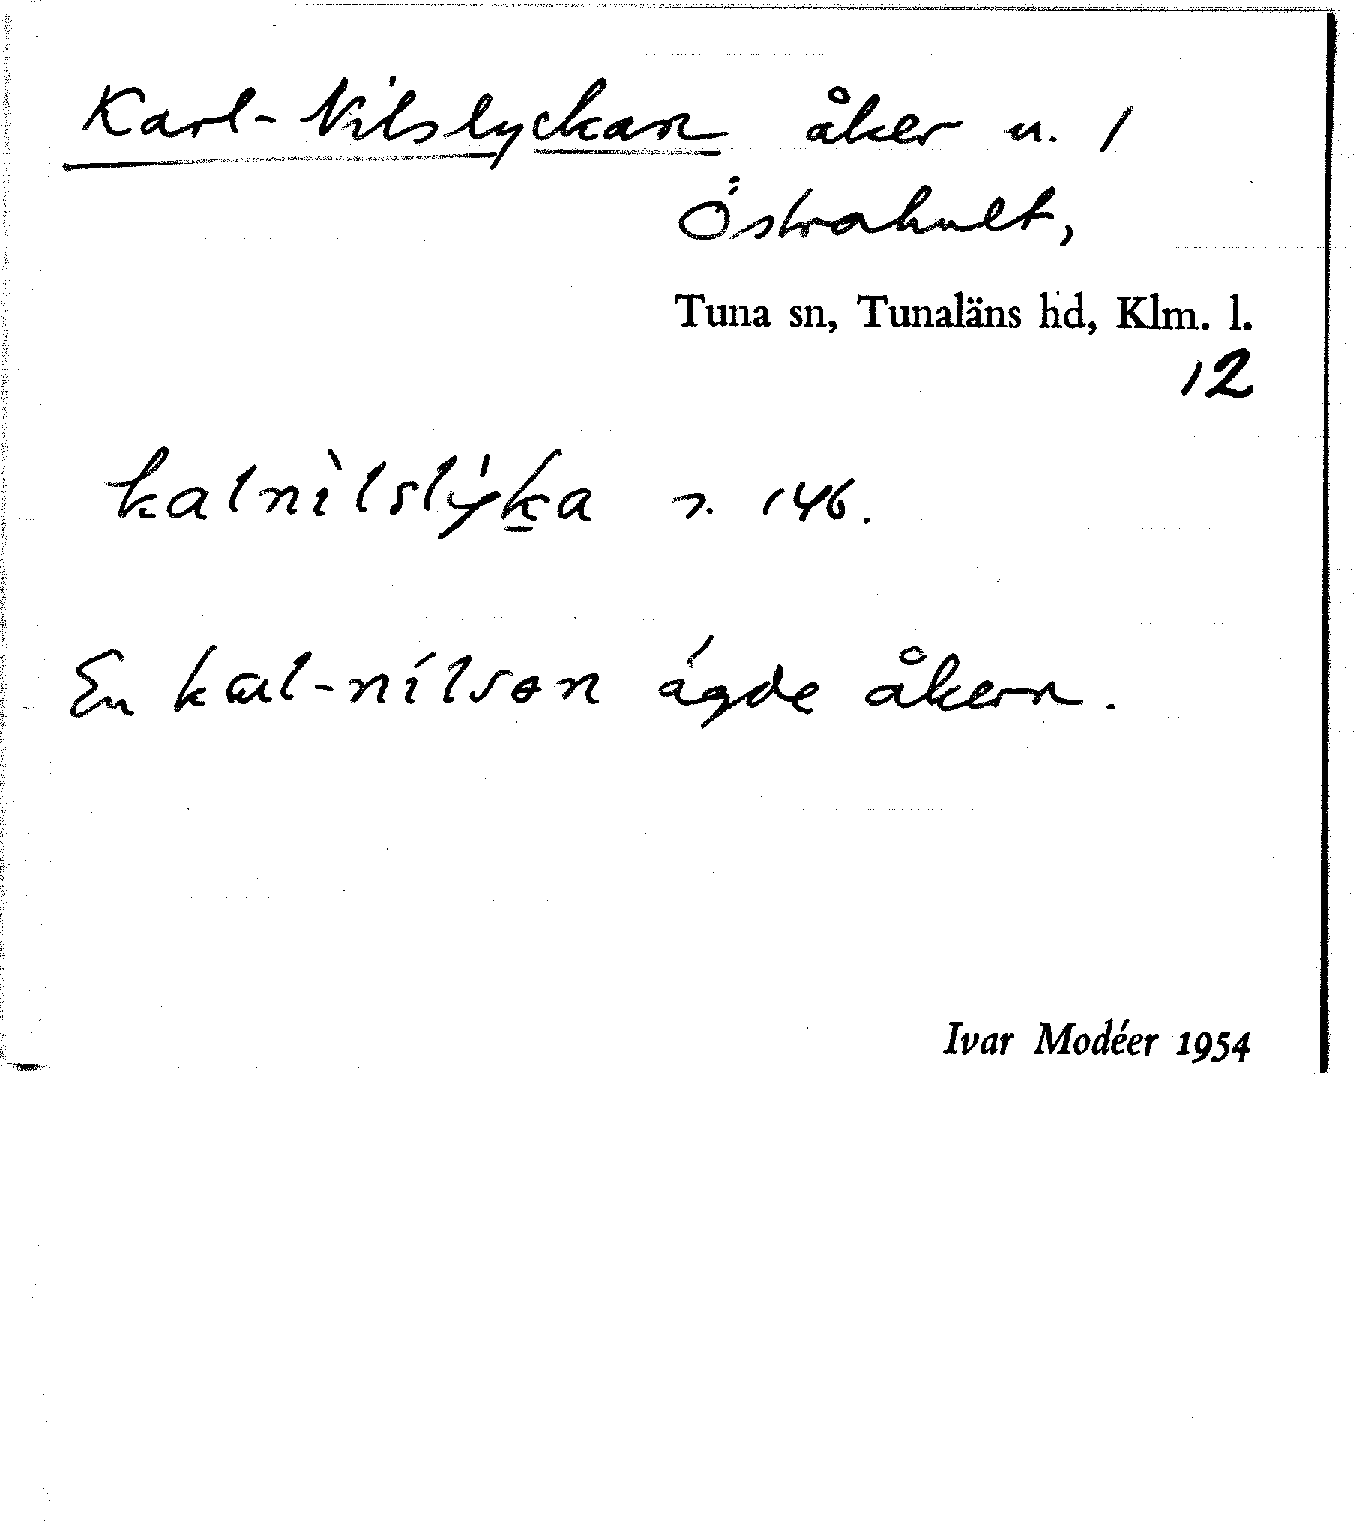 Karl-Nilslyckan åker u. 1
Östrahult,
Tuna sn, Tunaläns hd, Klm. l.
12
kalnìlslýka s. 146.
En kal-nílson ägde åkern.
Ivar Modéer 1954